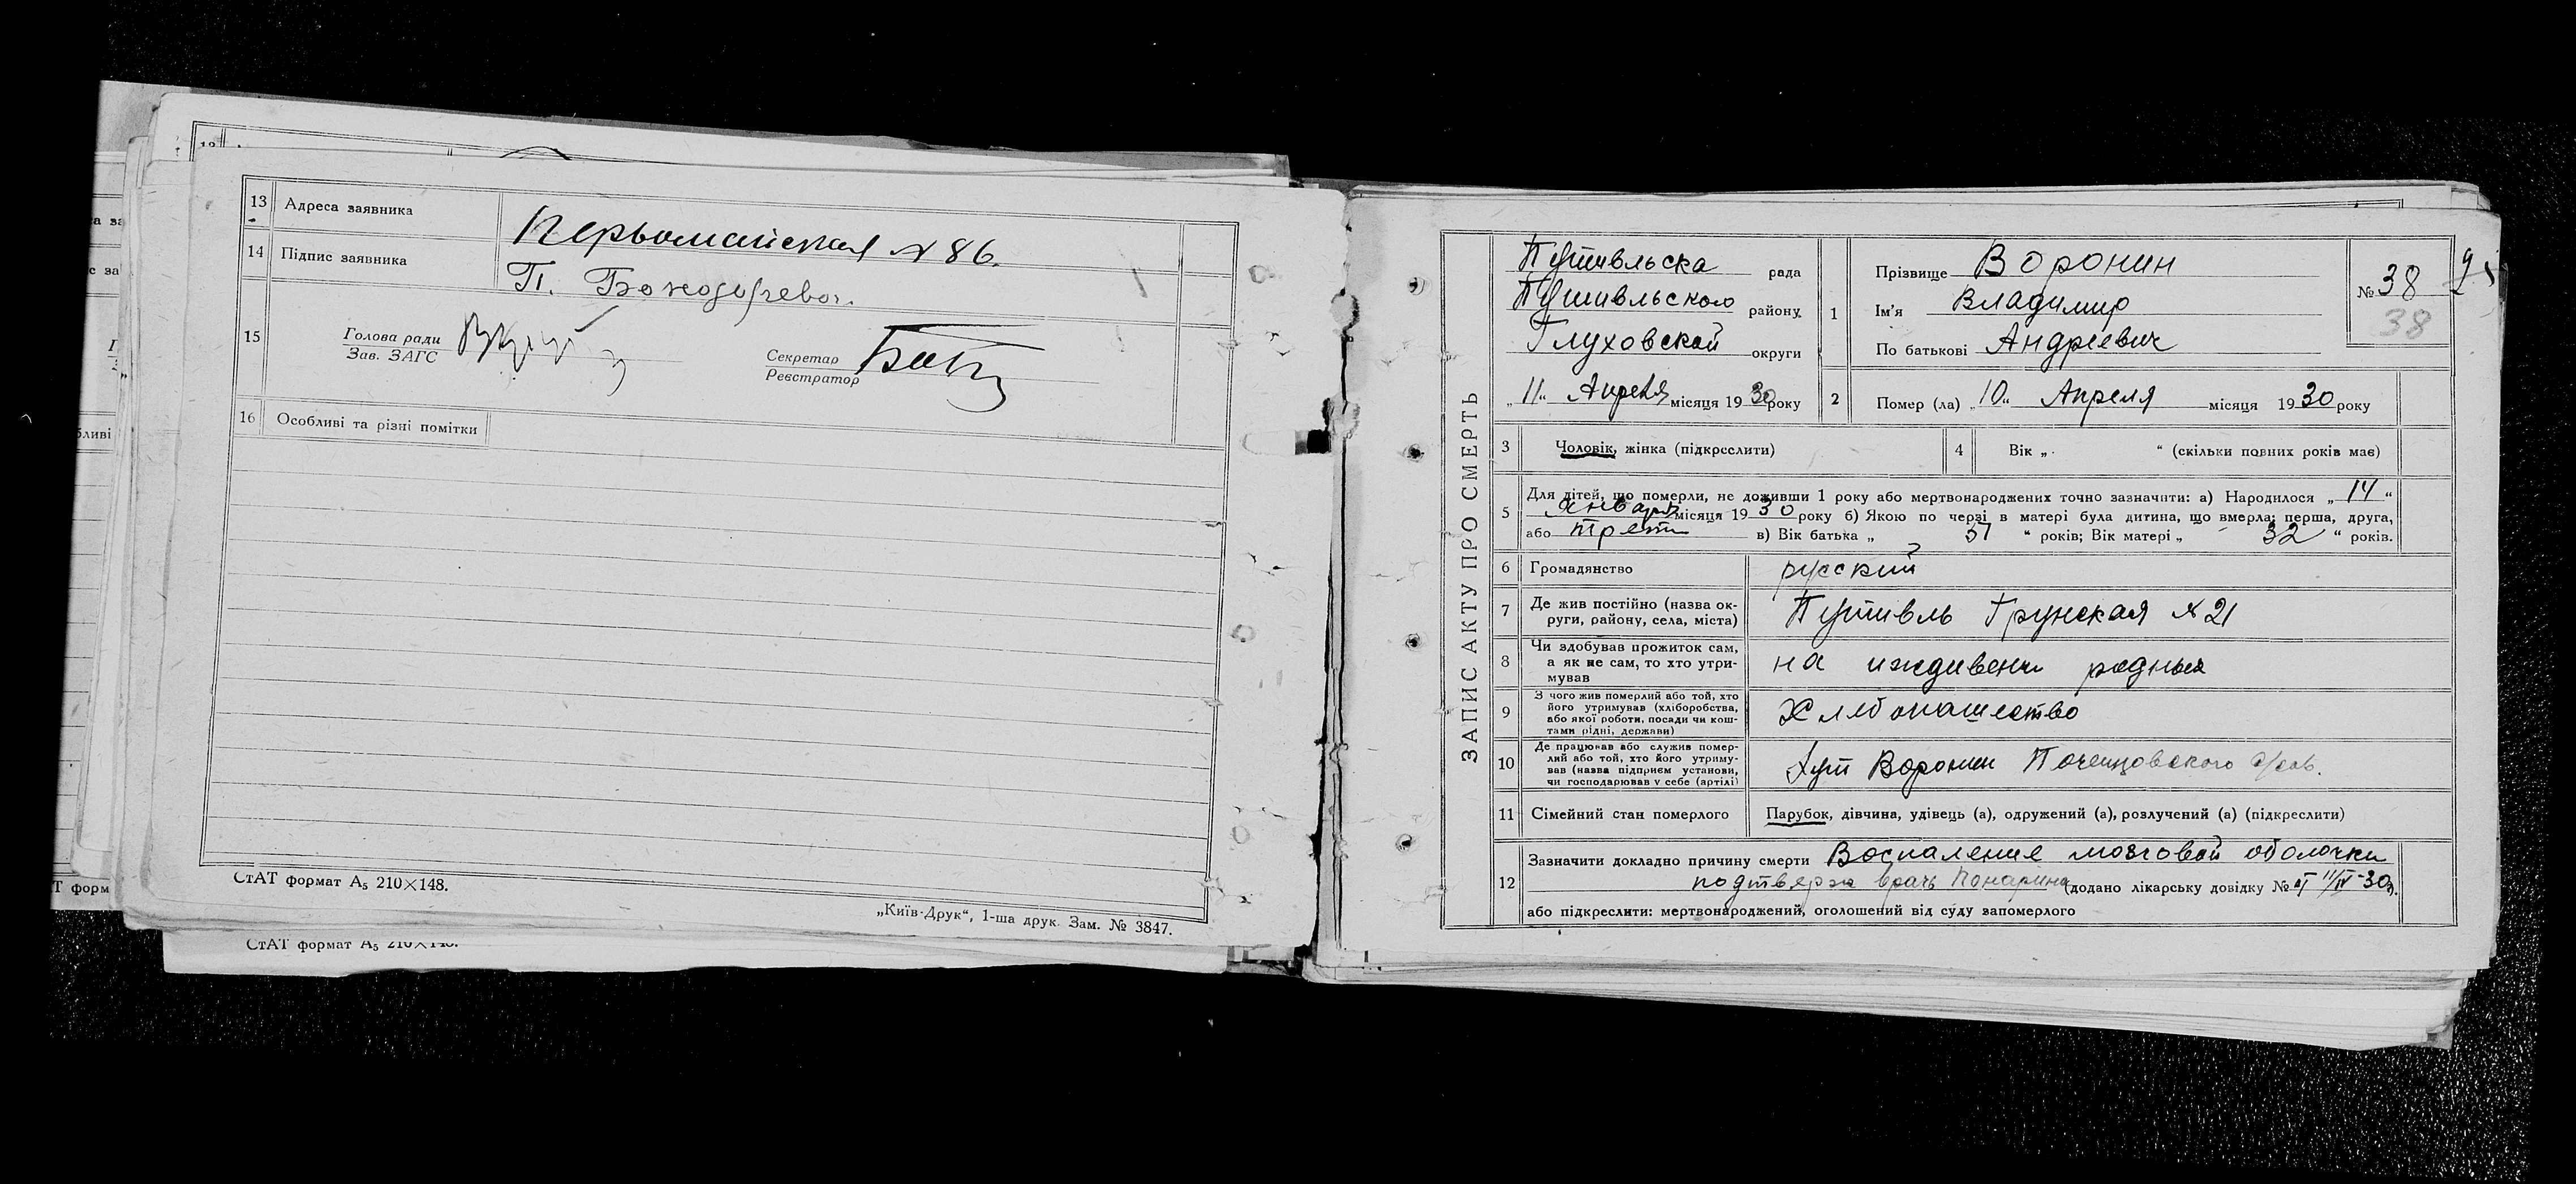 13 Адреса заявника Первомайская № 86.
14 Підпис заявника П.
15 Голова ради
Зав. ЗАГС
Секретар
Реєстратор
16 Особливі та різні помітки
СтАТ формат А5 210×148.
„Київ-Друк“, 1-ша друк. Зам. № 3847.
СтАТ формат А5 210×148.
Т форм
ЗАПИС АКТУ ПРО СМЕРТЬ
Путивльска рада
Путивльского району
Глуховской округи
„11“ Апреля місяця 1930 року
1 Прізвище Воронин
Ім'я Владимир
По батькові Андреевич
№ 38
38
2 Помер (ла) „10“ Апреля місяця 1930 року
3 Чоловік, жінка (підкреслити)
4 Вік „ “ (скільки повних років має)
5 Для дітей, що померли, не доживши 1 року або мертвонароджених точно зазначити: а) Народилося „14“
Января місяця 1930 року б) Якою по черзі в матері була дитина, що вмерла: перша, друга,
або трет в) Вік батька „ 37 “ років; Вік матері „ 32 “ років.
6 Громадянство русский
7 Де жив постійно (назва ок-
руги, району, села, міста) Путивль Грунская № 21
8 Чи здобував прожиток сам,
а як не сам, то хто утри-
мував на иждивени родных
9 З чого жив померлий або той, хто
його утримував (хліборобства,
або якої роботи, посади чи кош-
тами рідні, держави) Хлебопашество
10 Де працював або служив помер-
лий або той, хто його утриму-
вав (назва підприєм установи,
чи господарював у себе (артілі) Хут Воронин с/сов.
11 Сімейний стан померлого Парубок, дівчина, удівець (а), одружений (а), розлучений (а) (підкреслити)
12 Зазначити докладно причину смерти Воспаление мозговой оболочки
подтвержд врач (додано лікарську довідку № от 11/IV-30).
або підкреслити: мертвонароджений, оголошений від суду запомерлого